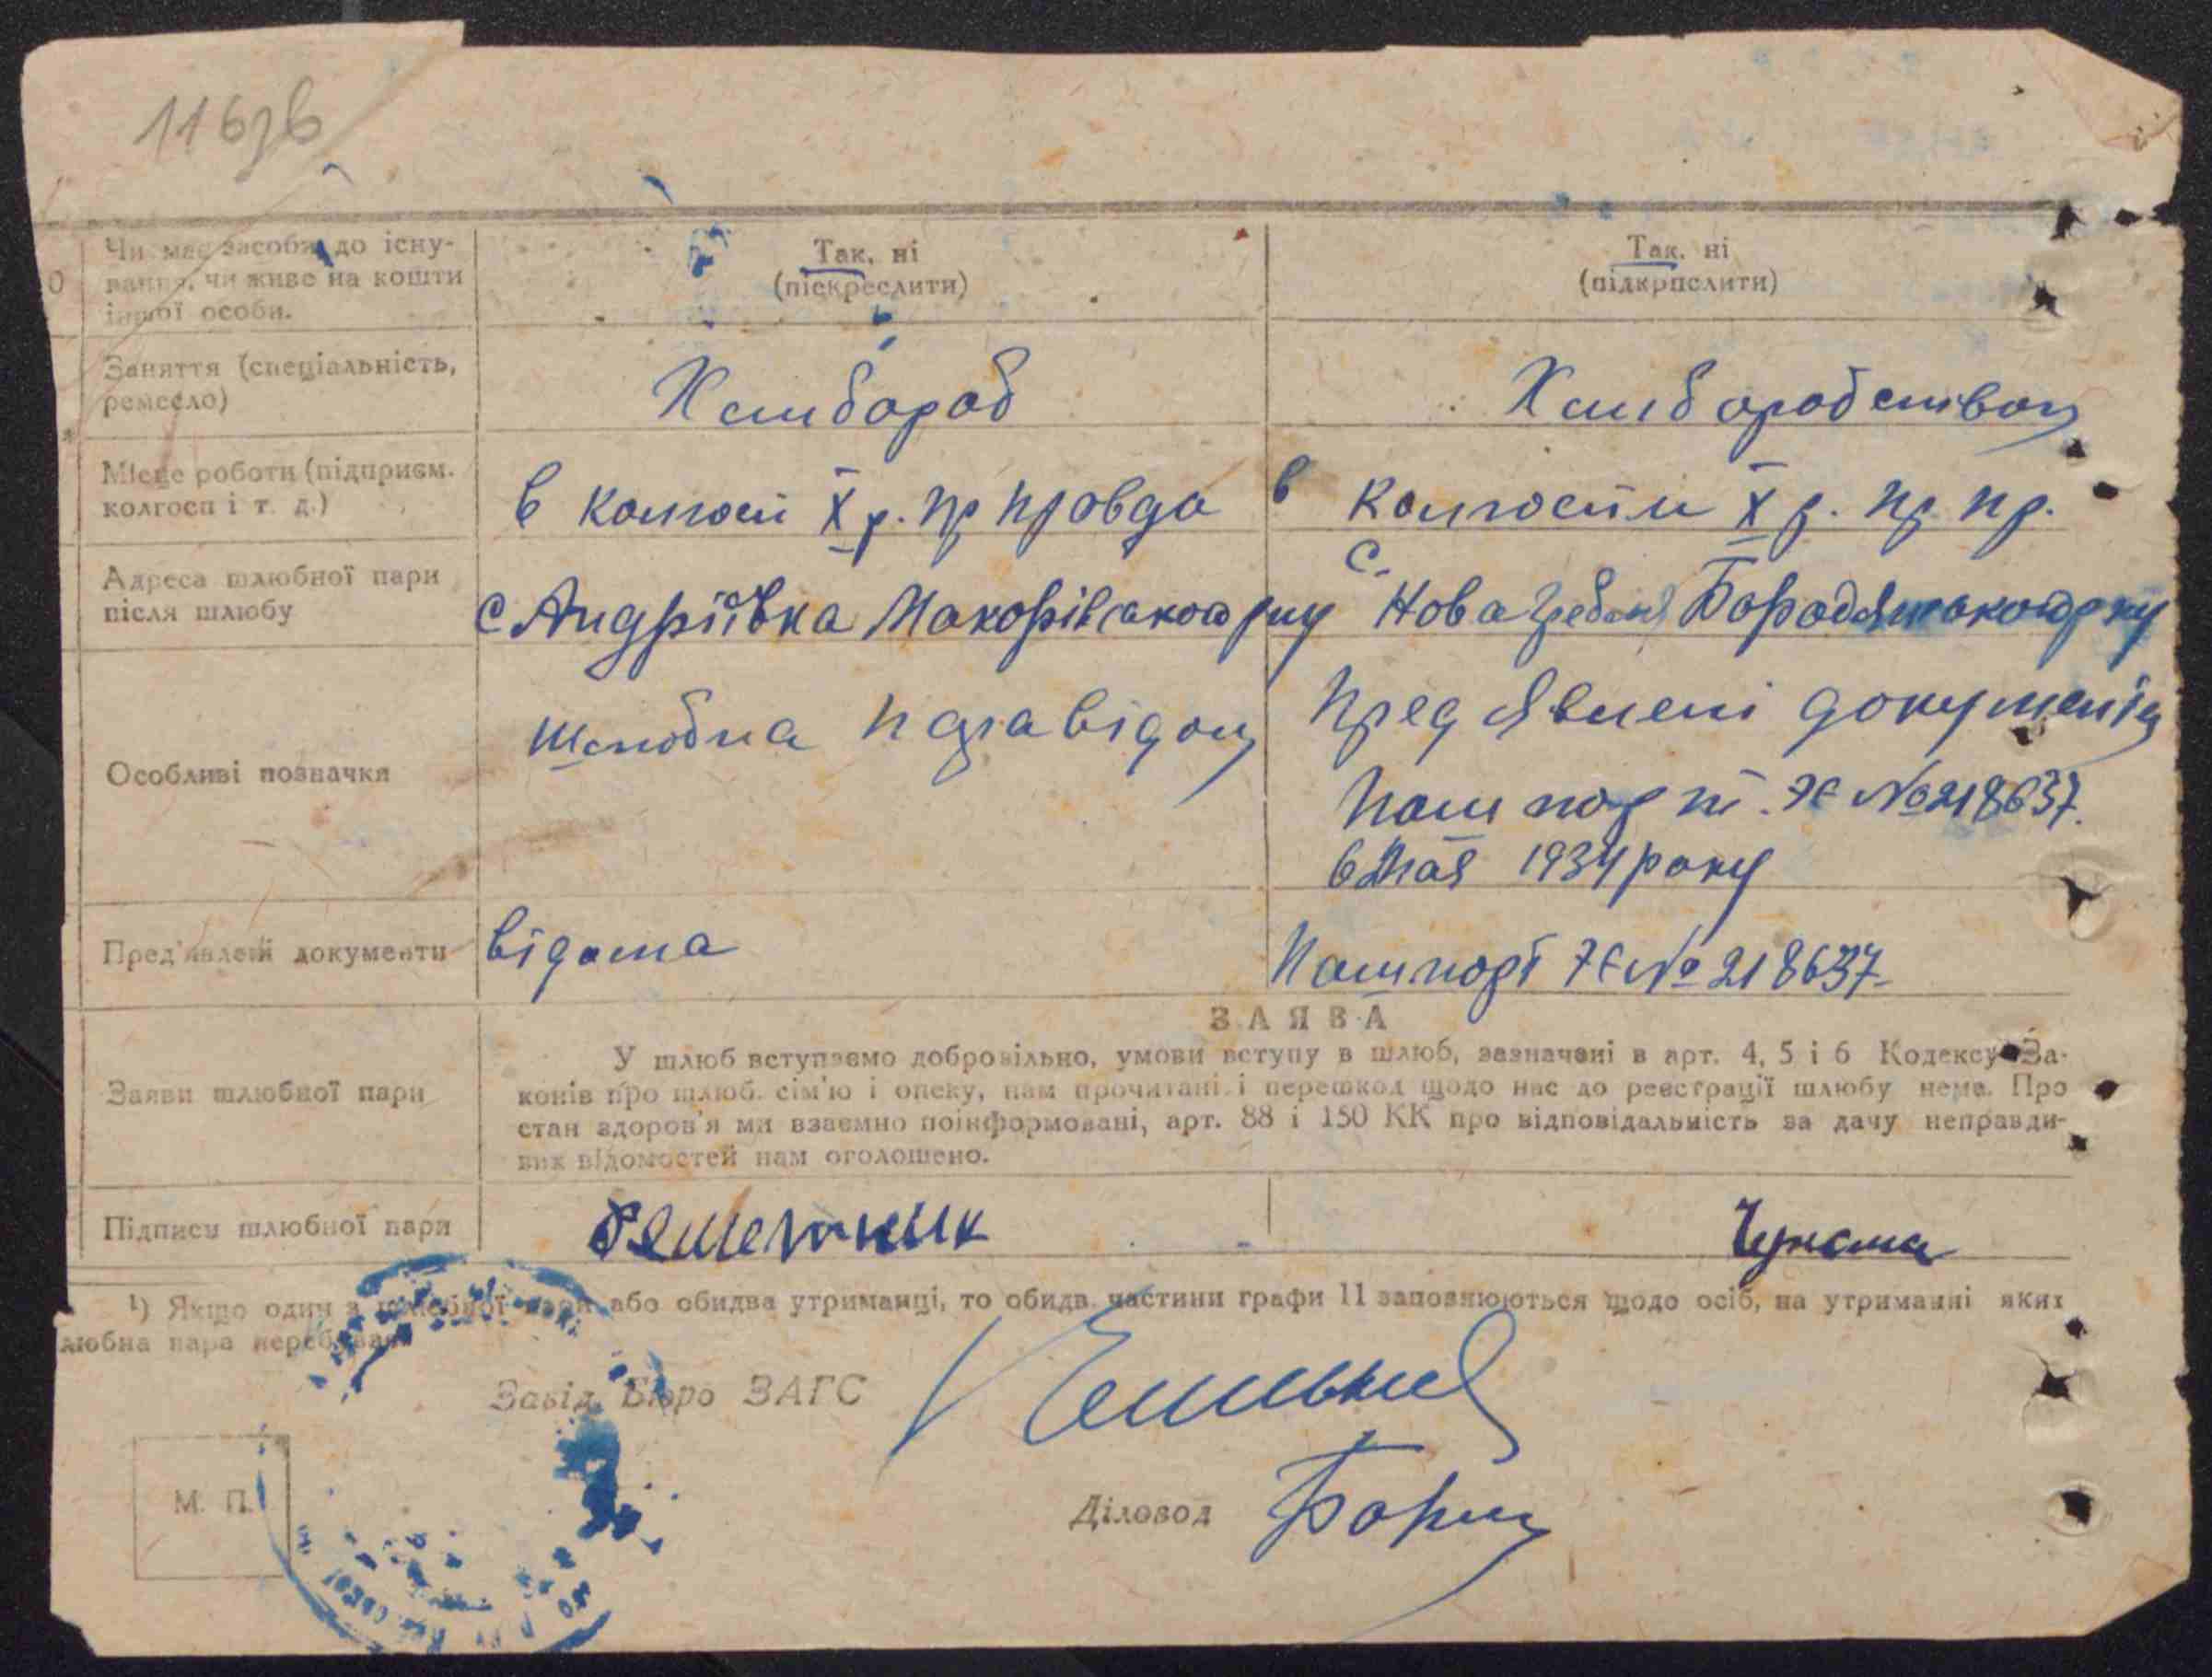 116зв
Чи має засоби до існу-
вання, чи живе на кошти
іншої особи.
Так, ні
(піскреслити)
Так, ні
(підкрпслити)
Заняття (спеціальність,
ремесло)
Хлибороб
Хлиборобство
Місце роботи (підприєм.
колгосп і т. д.)
в колгосп X р. пр правда
в колгоспи X р. пр пр.
Адреса шлюбної пари
після шлюбу
с Андріївка Макорівського рну
с. Нова Гребля Бородянського рну
Особливі позначки
шлюбна
Пред явлені документи
Пашпорт. ЖЄ №218637.
6 Мая 1934 року
Пред'явлені документи
відома
Пашпорт ЖЄ № 218637
ЗАЯВА
Заяви шлюбної пари
У шлюб вступаємо добровільно, умови вступу в шлюб, зазначені в арт. 4, 5 і 6 Кодексу За-
конів про шлюб. сім'ю і опеку, нам прочитані і перешкод щодо нас до реєстрації шлюбу нема. Про
стан здоров'я ми взаємно поінформовані, арт. 88 і 150 КК про відповідальність за дачу неправди-
вих відомостей нам оголошено.
Підписи шлюбної пари
Решетник
¹) Якщо один з шлюбної пари або обидва утриманці, то обидв. частини графи 11 заповнюються щодо осіб, на утриманні яких
любна пара перебуває
Завід. Бюро ЗАГС
М. П.
Діловод